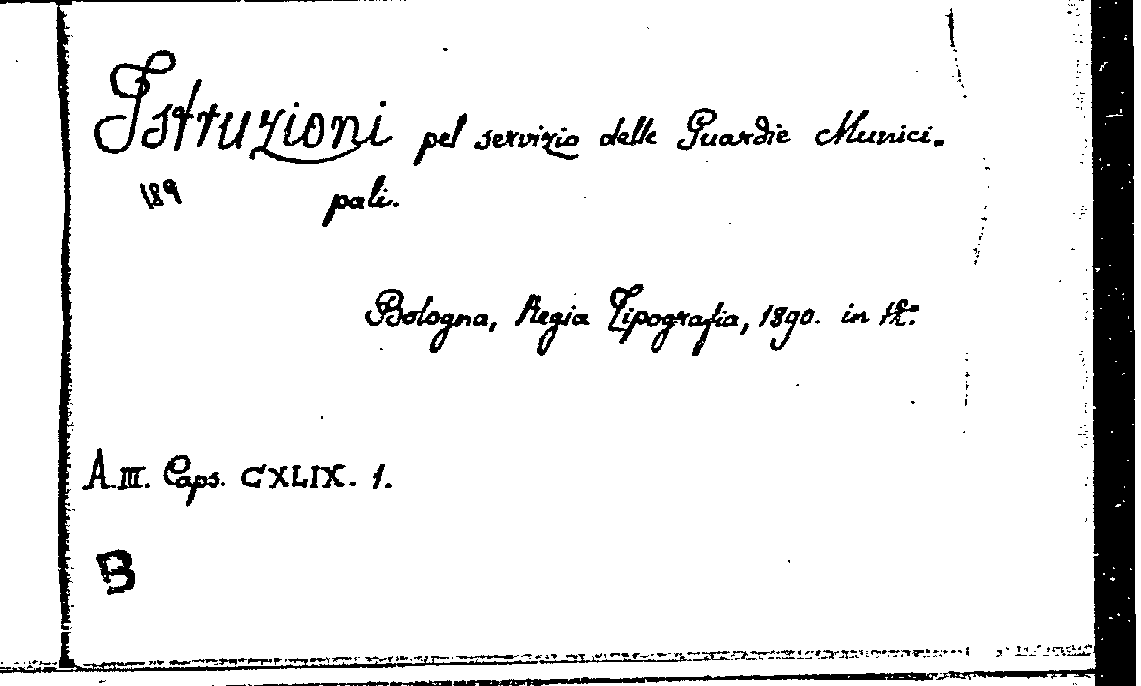 Istruzioni pel servizio delle Guardie Munici-
189 pali.
Bologna, Regia Tipografia, 1890. in 12.º
A.III. Caps. CXLIX. 1.
B